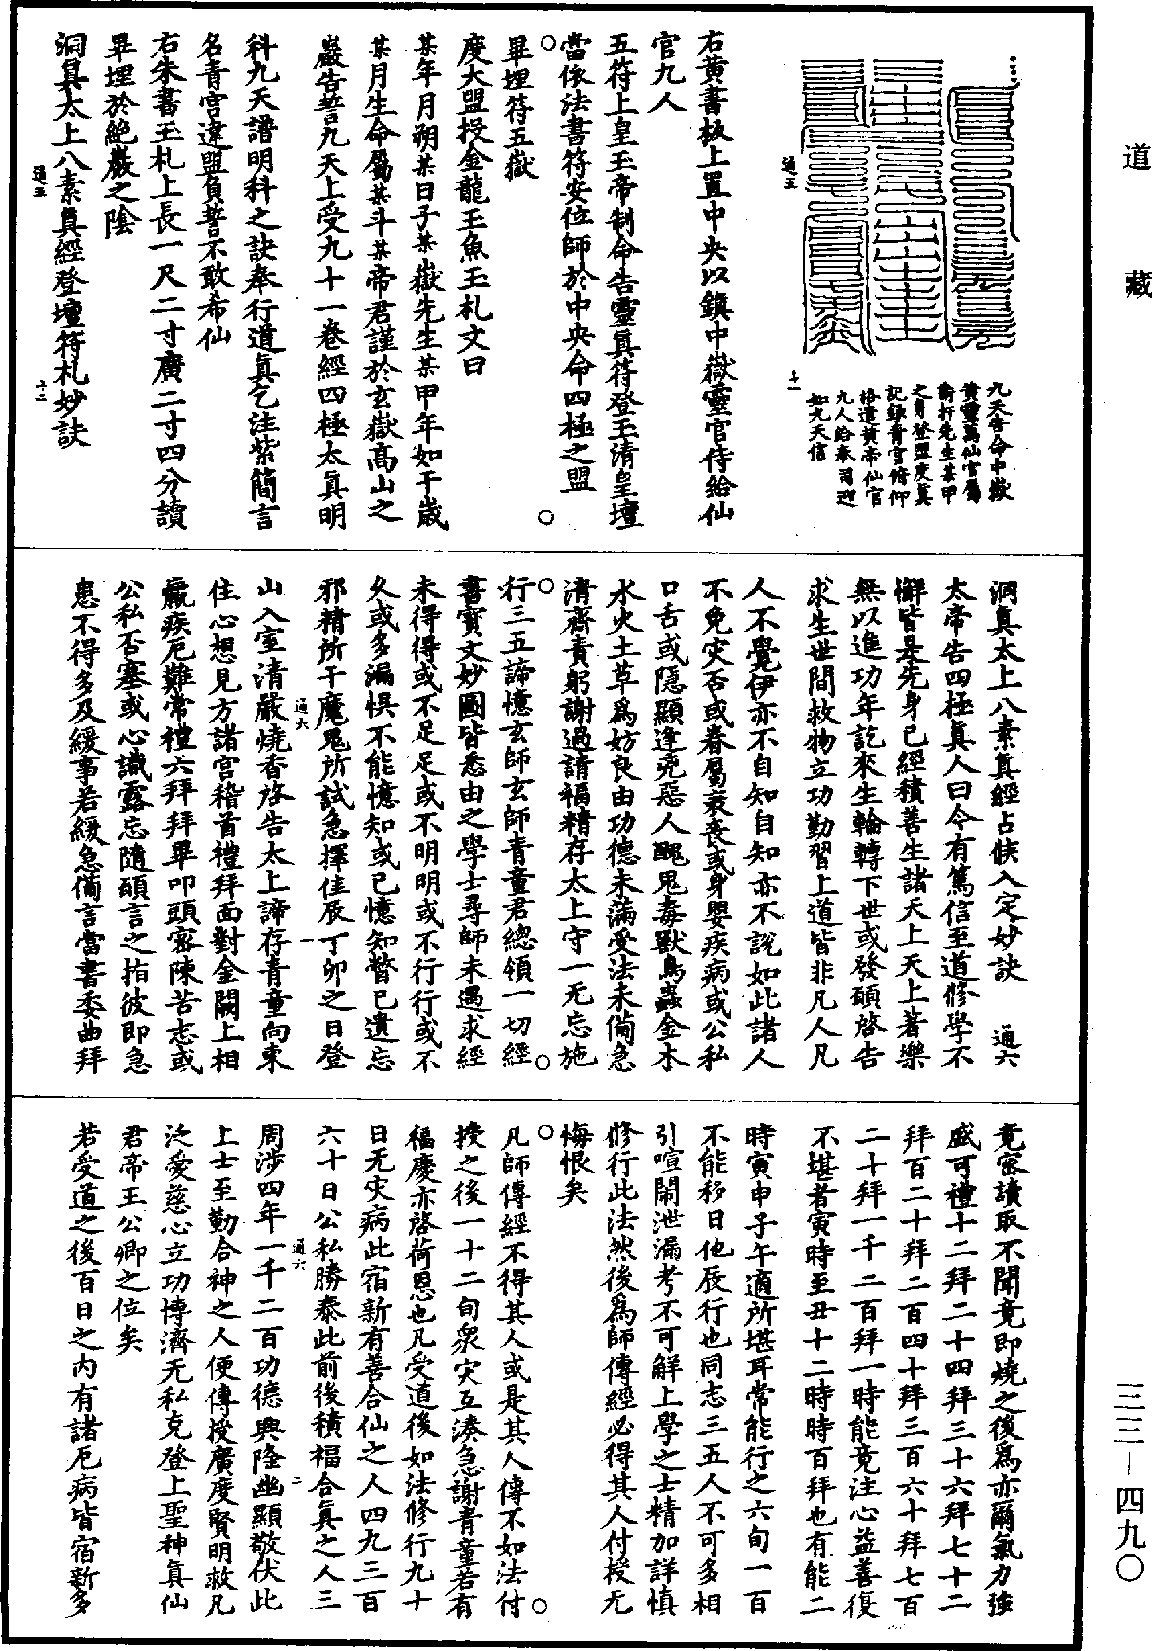 道藏
三三—四九〇
九天告命中嶽
黄靈萬仙官屬
衛扞先生某甲
之身登盟度真
記録青宫脩仰
格遣黄帝仙官
九人給奉司迎
如九天信
十一
通五
右黄書板上置中央以鎮中嶽靈官侍給仙
官九人
五符上皇玉帝制命告靈真符登玉清皇壇
當依法書符安位師於中央命四極之盟
畢埋符五嶽
度大盟投金龍玉魚玉札文曰
某年月朔某日子某嶽先生某甲年如干歲
某月生命屬某斗某帝君謹於玄嶽高山之
巖告誓九天上受九十一卷經四極太真明
科九天譜明科之訣奉行道真乞注紫簡言
名青宫違盟負誓不敢希仙
右朱書玉札上長一尺二寸廣二寸四分讀
畢埋於絶巖之陰
通五
十二
洞真太上八素真經登壇符札妙訣
洞真太上八素真經占候入定妙訣
通六
太帝告四極真人曰今有篤信至道修學不
懈皆是先身已經積善生諸天上天上著樂
無以進功年訖來生輪轉下世或發願啓告
求生世間救物立功勤習上道皆非凡人凡
人不覺伊亦不自知自知亦不說如此諸人
不免灾否或眷屬衰喪或身嬰疾病或公私
口舌或隱顯逢兇惡人醜鬼毒獸鳥蟲金木
水火土草爲妨良由功德未滿受法未備急
清齋責躬謝過請福精存太上守一无忘施
行三五諦憶玄師玄師青童君總領一切經
書寶文妙圖皆悉由之學士尋師未遇求經
未得得或不足足或不明明或不行行或不
久或多漏惧不能憶知或已憶知瞥已遺忘
邪精所干魔鬼所試急擇佳辰丁卯之日登
通六
一
山入室清嚴燒香啓告太上諦存青童向東
住心想見方諸宫稽首禮拜面對金闕上相
羸疾厄難常禮六拜拜畢叩頭密陳苦志或
公私否塞或心識露忘隨願言之指彼即急
患不得多及緩事若緩急備言當書委曲拜
竟密讀取不聞竟即燒之後爲亦爾氣力強
盛可禮十二拜二十四拜三十六拜七十二
拜百二十拜二百四十拜三百六十拜七百
二十拜一千二百拜一時能竟注心益善復
不堪者寅時至丑十二時時百拜也有能二
時寅申子午適所堪耳常能行之六旬一百
不能移日他辰行也同志三五人不可多相
引喧鬧泄漏考不可解上學之士精加詳慎
修行此法然後爲師傳經必得其人付授无
悔恨矣
凡師傳經不得其人或是其人傳不如法付
授之後一十二旬衆灾互湊急謝青童若有
福慶亦啓荷恩也凡受道後如法修行九十
日无灾病此宿新有善合仙之人四九三百
六十日公私勝泰此前後積福合真之人三
通六
二
周涉四年一千二百功德興隆幽顯敬伏此
上士至勤合神之人便傳授廣度賢明救凡
泛愛慈心立功博濟无私克登上聖神真仙
君帝王公卿之位矣
若受道之後百日之内有諸厄病皆宿新多